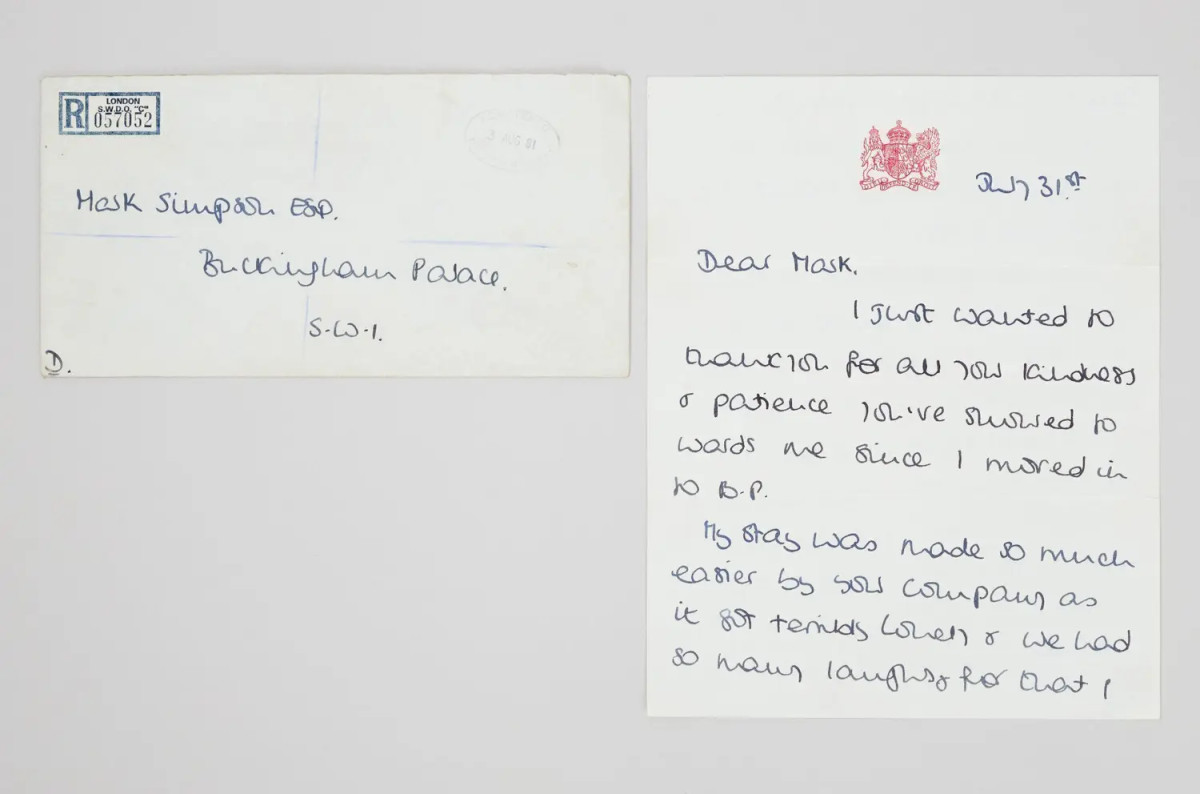 R
LONDON
S.W.D.O. "C"
057052
3 AUG 81
Mark Simpson ESQ.
Buckingham Palace.
S.W.1.
D.
July 31st
Dear Mark.
I just wanted to
thank you for all your kindness
& patience you've showed to
wards me since I moved in
to B.P.
My stay was made so much
easier by your company as
it got terribly lonely & we had
so many laughs, for that I